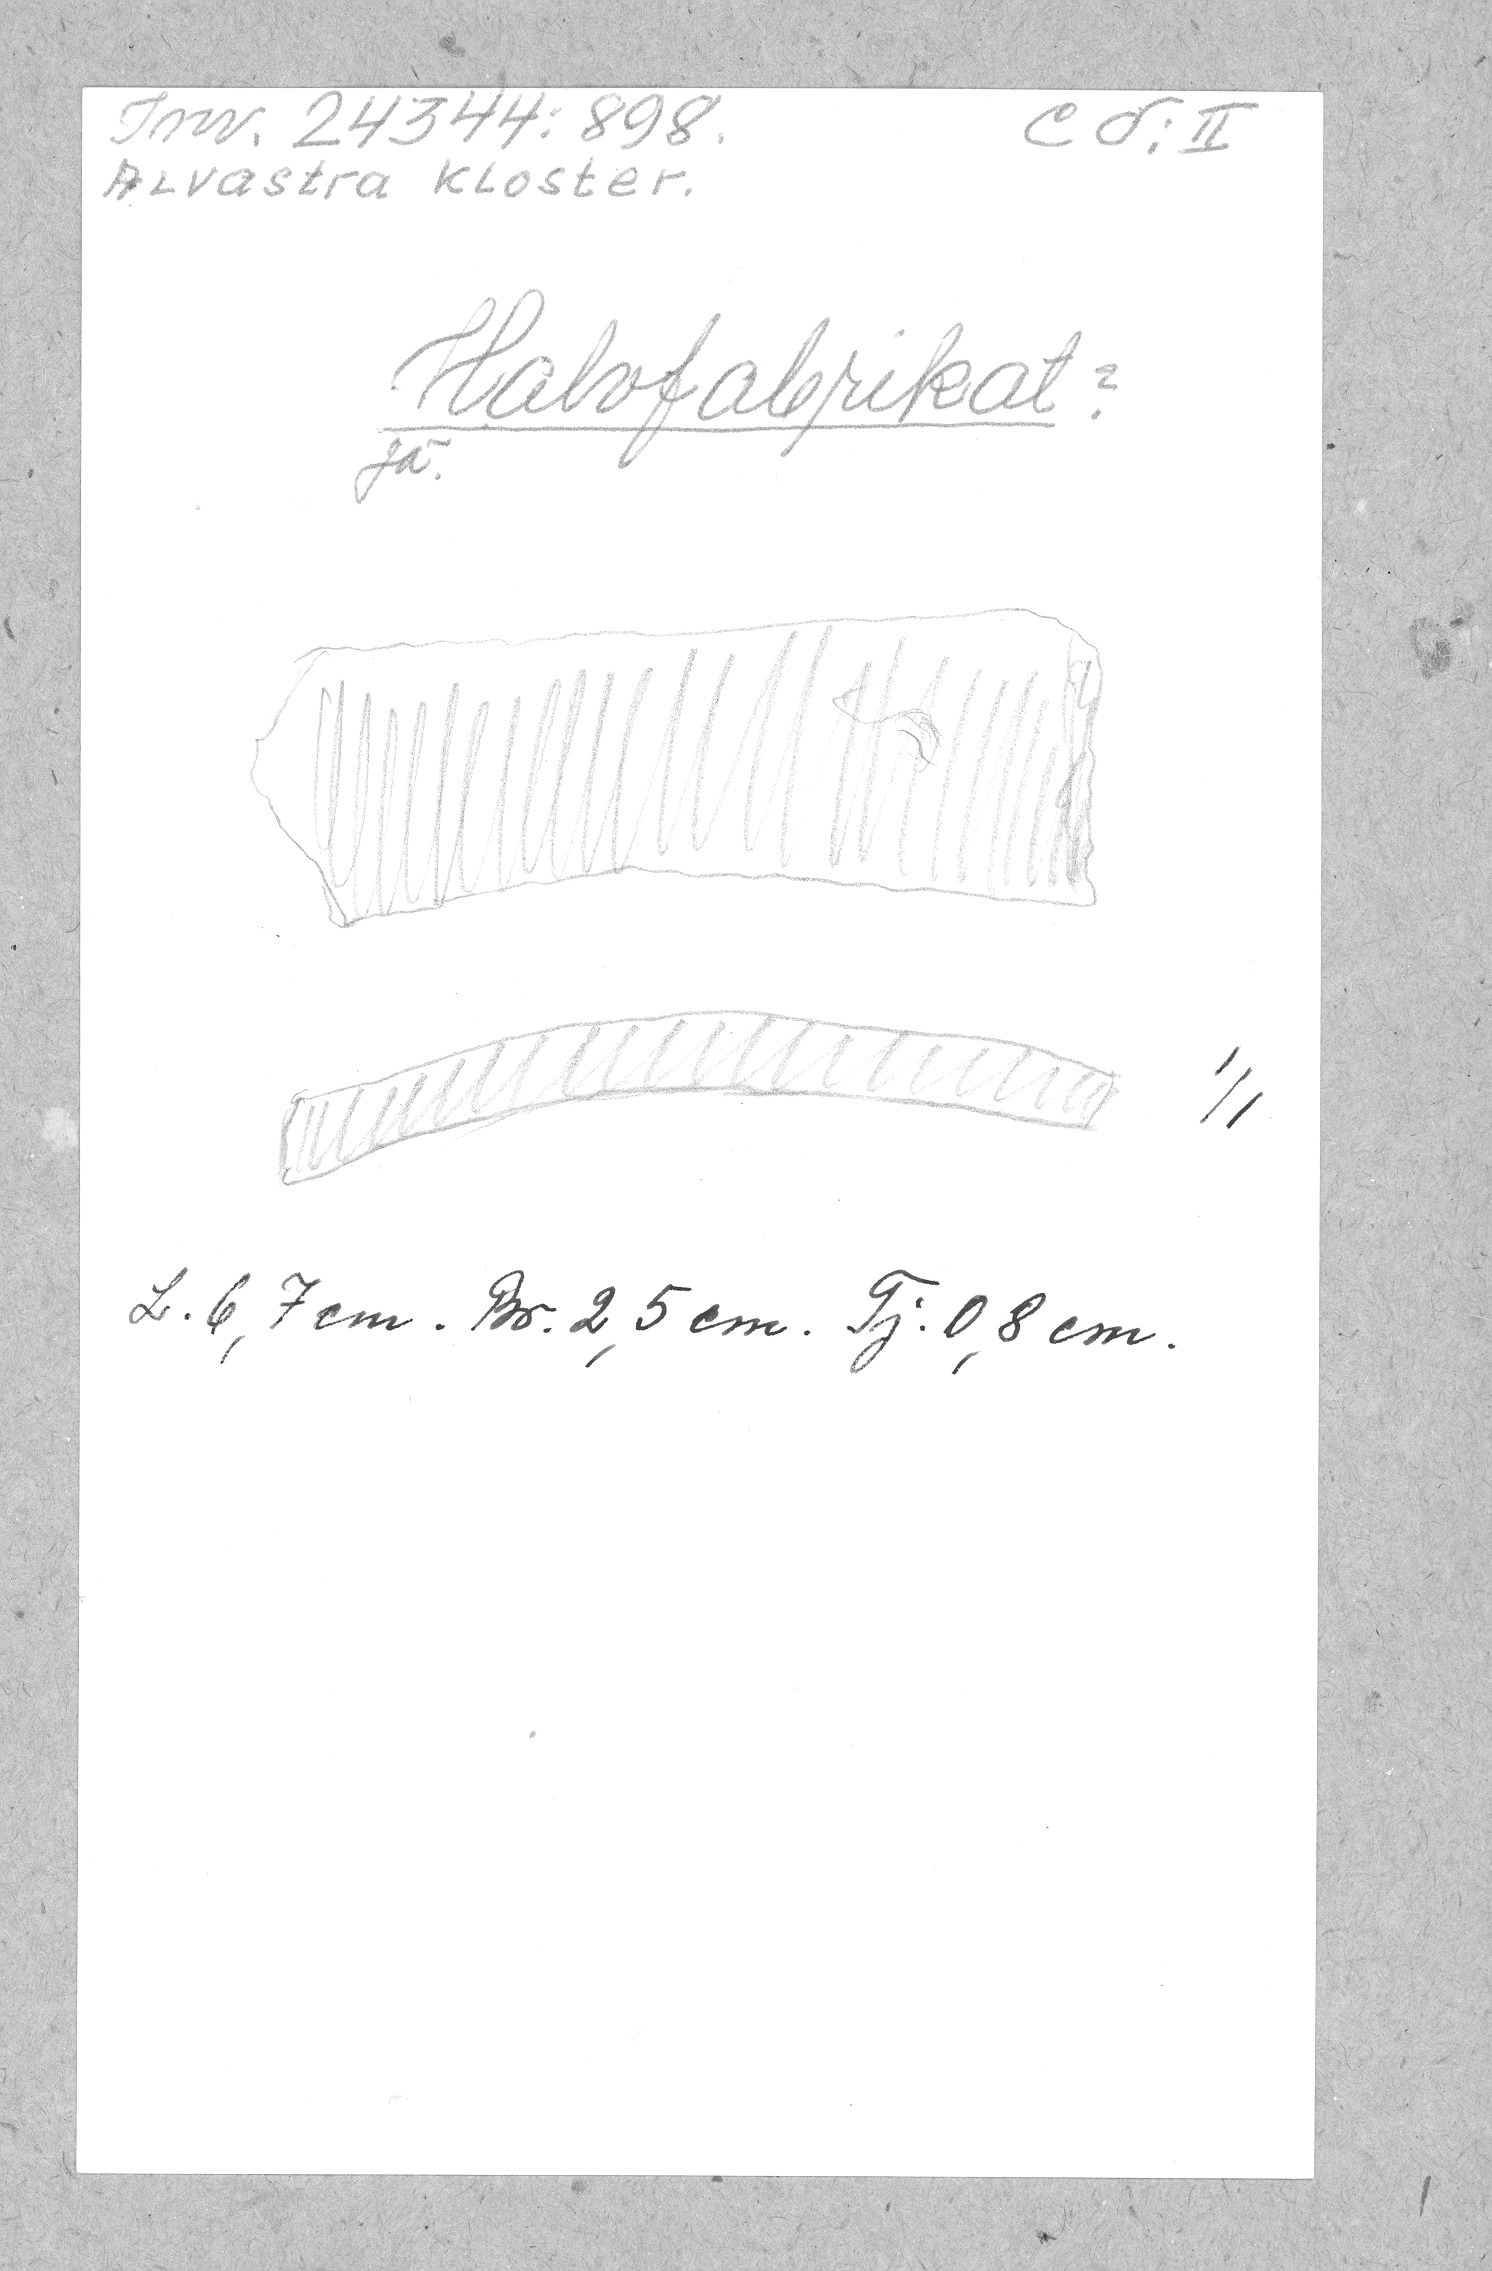 Inv. 24344:898. C Ö: II
Alvastra kloster.
Halvfabrikat?
Ja.
1/1
L. 6,7 cm. Br. 2,5 cm. Tj: 0,8 cm.